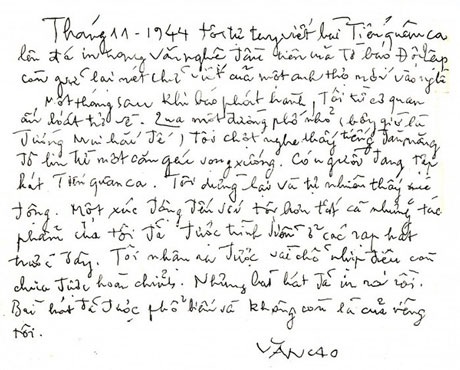 Tháng 11-1944 tôi tự tay viết bài Tiến quân ca
lên đá in trong Văn nghệ đầu tiên mà Tờ báo Độc lập
còn giữ lại nét chữ viết của một anh thợ mới vào nghề
Một tháng sau khi báo phát hành, Tôi từ cơ quan
ấn loát trở về. Qua một đường phố nhỏ (bây giờ là
đường Mai hắc Đế) tôi chợt nghe thấy tiếng đàn măng
đô lin từ một căn gác vọng xuống. Có người đang tập
hát Tiến quân ca. Tôi dừng lại và tự nhiên thấy xúc
động. Một xúc động đến với tôi hơn tất cả những tác
phẩm của tôi đã được trình diễn ở các rạp hát
trước đây. Tôi nhận ra được vài chỗ nhịp điệu còn
chưa được hoàn chỉnh. Nhưng bài hát đã in ra rồi.
Bài hát đã được phổ biến và không còn là của riêng
tôi.
VĂN CAO